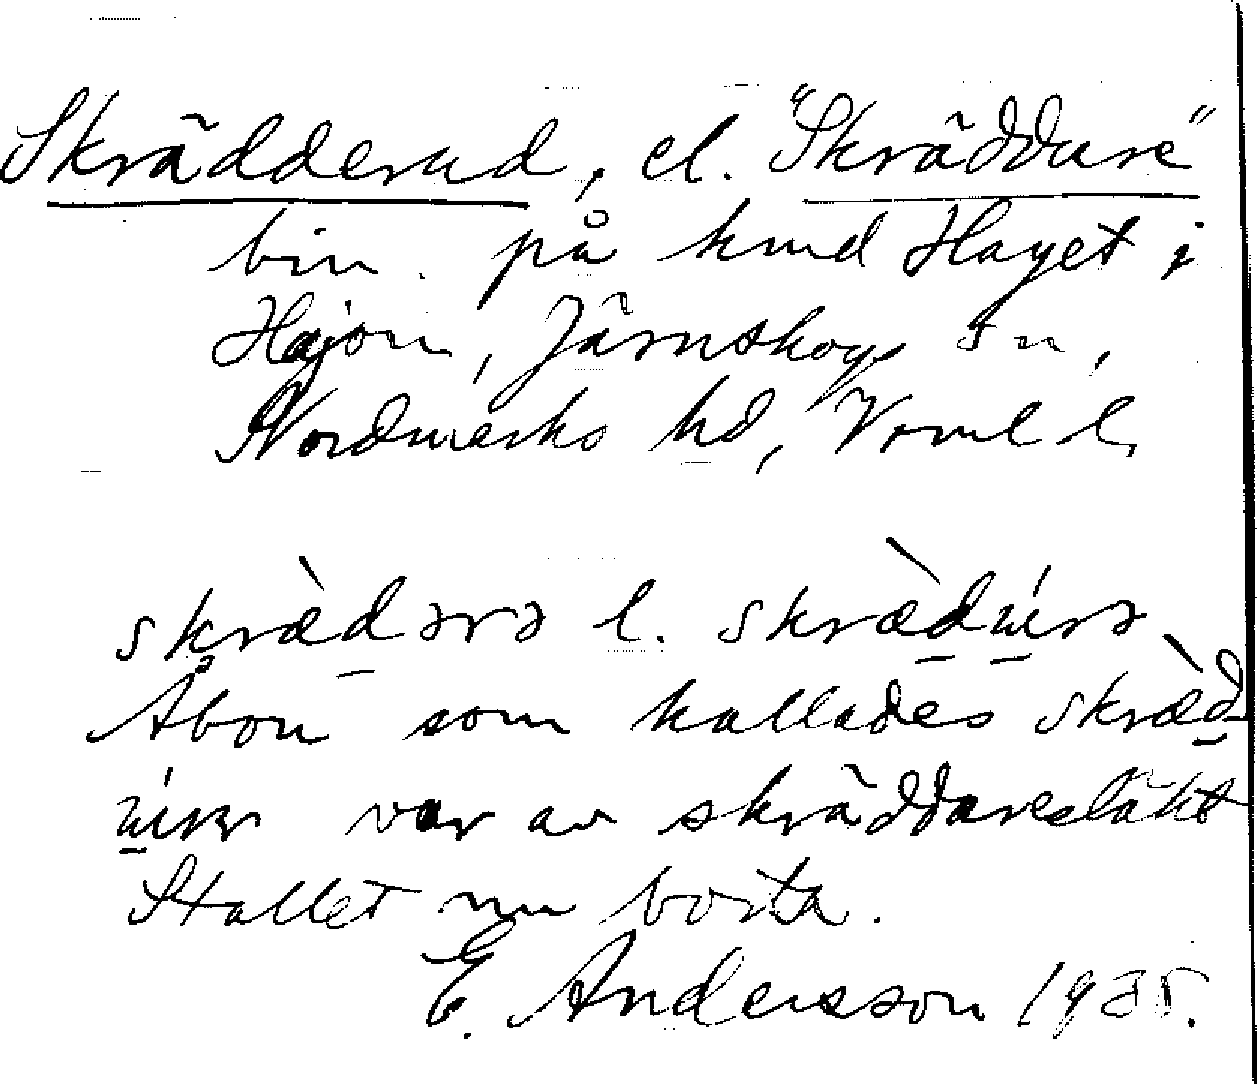 Skrädderud, el. "Skräddare"
bin. på hmd Haget i
Högen, Järnskogs sn,
Nordmarks hd, Värml l.
skrædərə l. skræd
Åbon som kallades skræd
var av skräddaresläkt
Stället nu borta.
E. Andersson 1935.